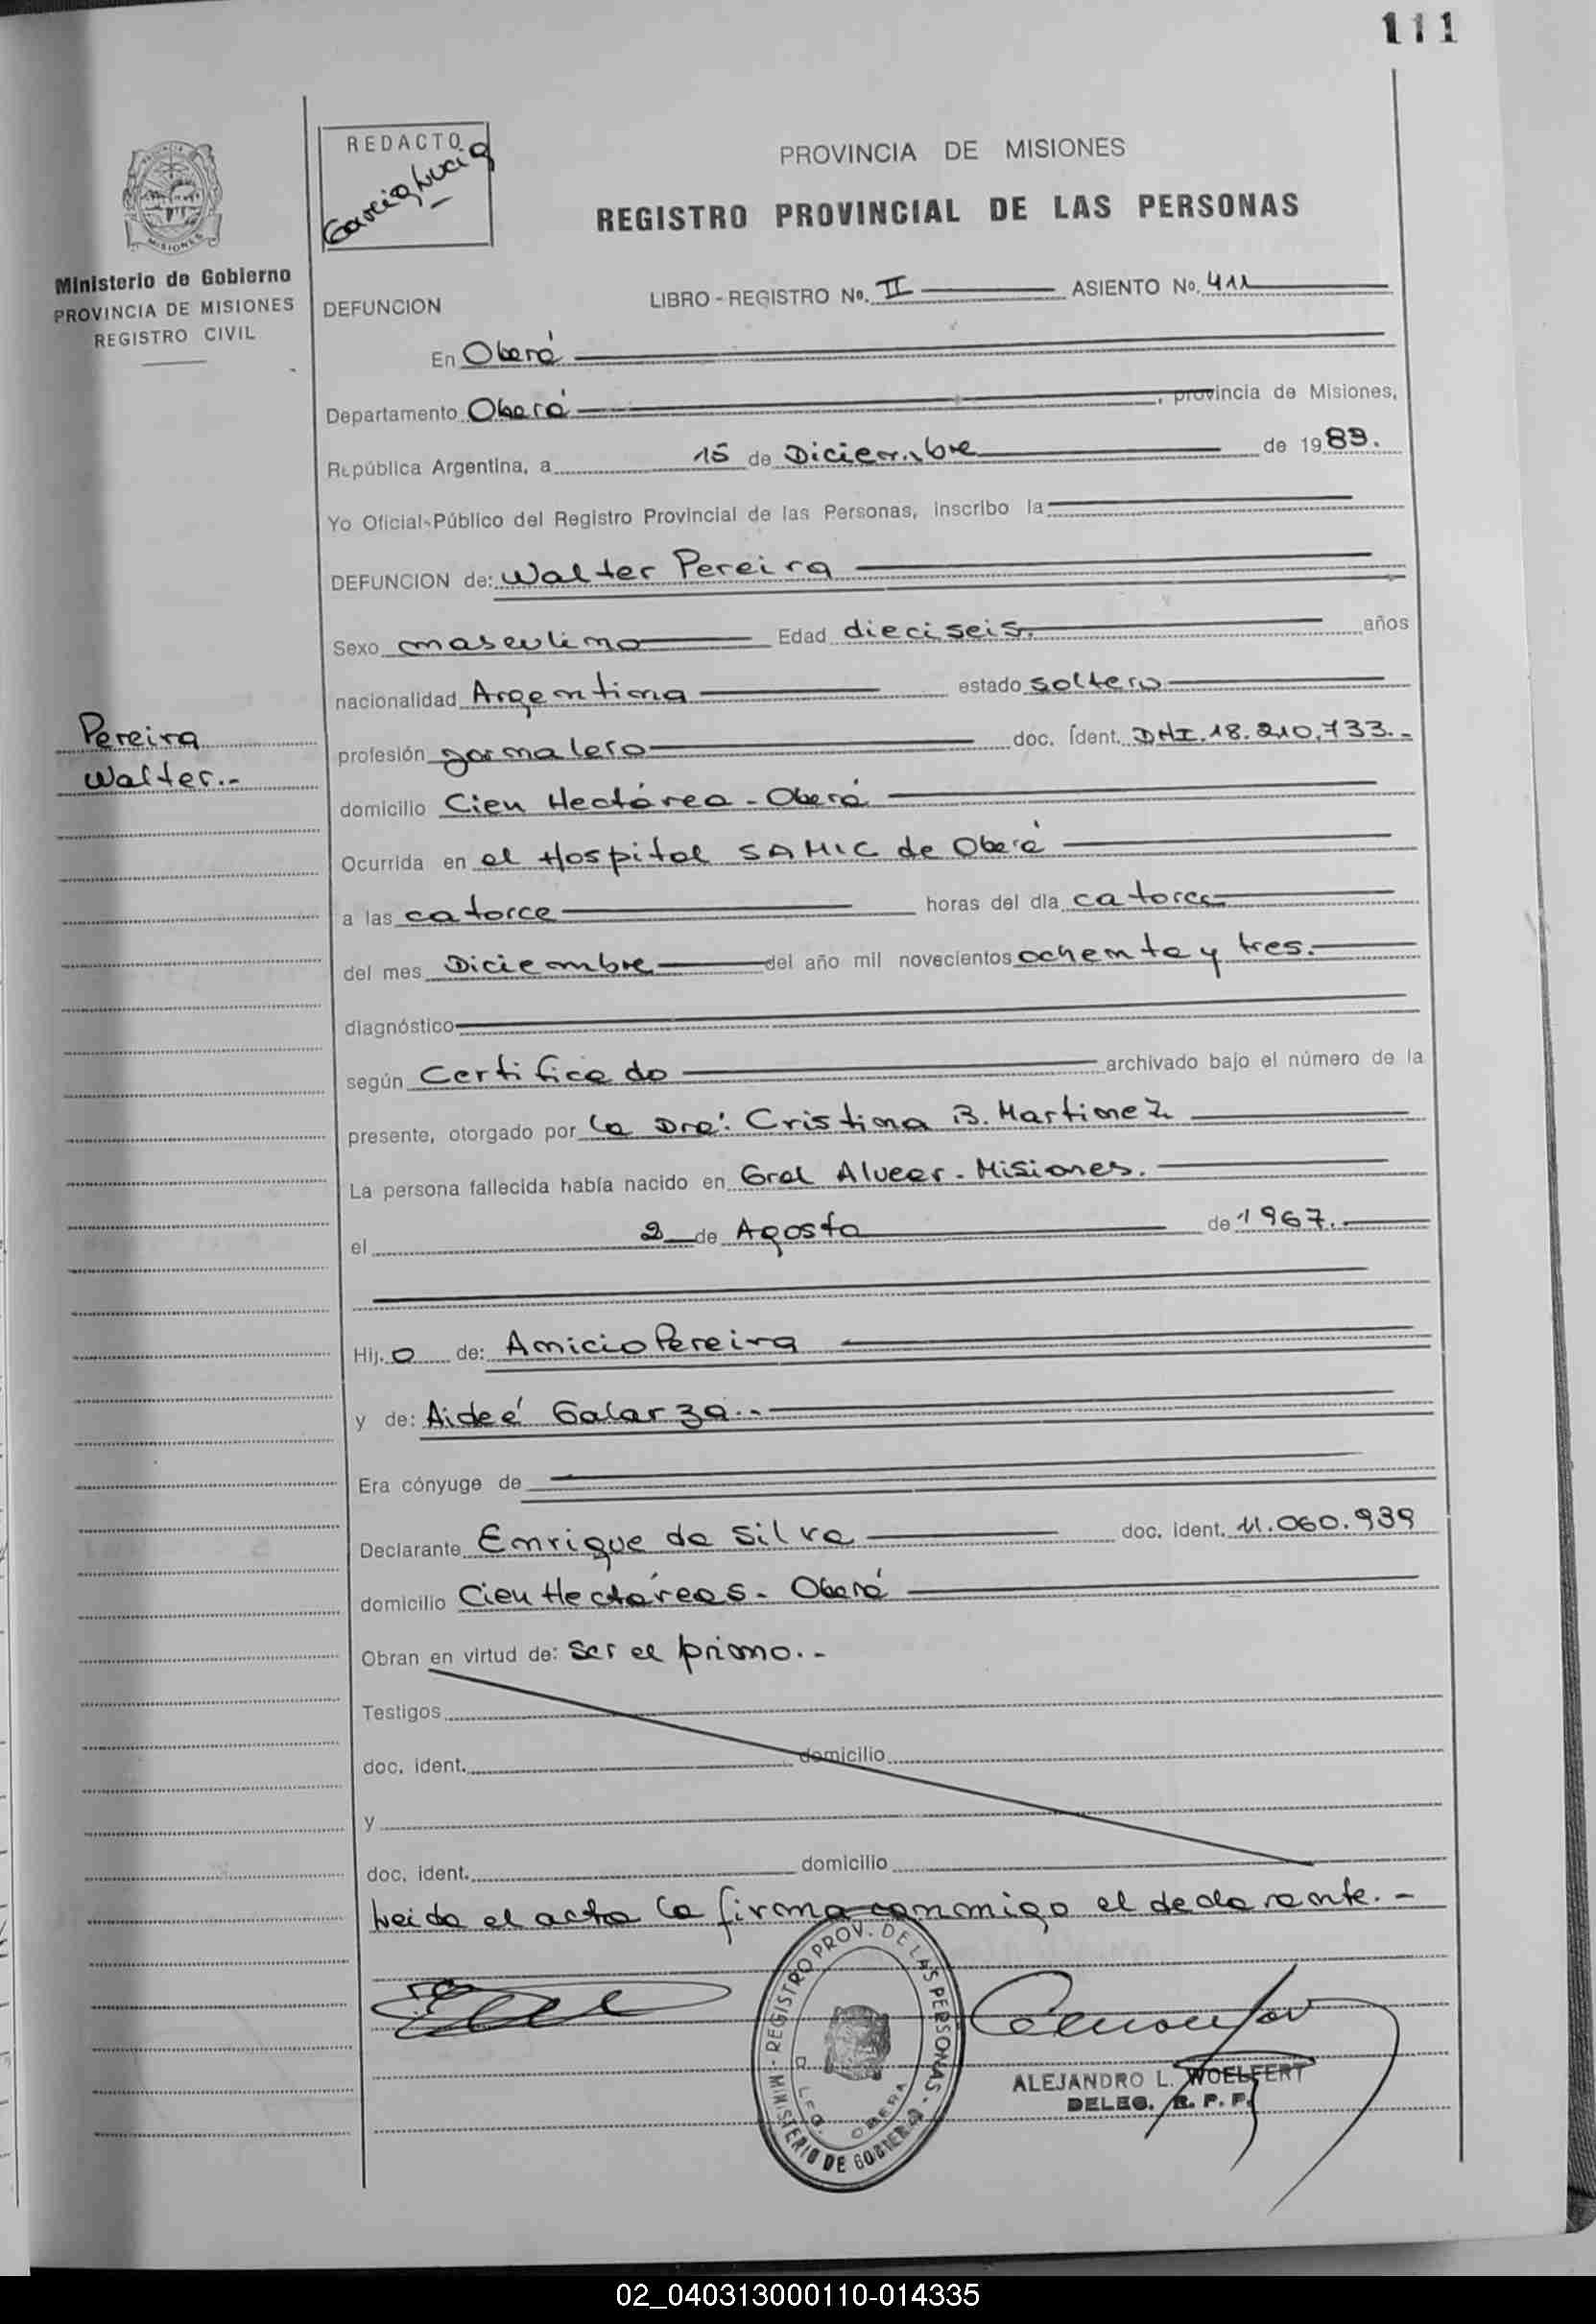 111
REDACTO
Garcia Lucia
PROVINCIA DE MISIONES
REGISTRO PROVINCIAL DE LAS PERSONAS
MISIONES
Ministerio de Gobierno
PROVINCIA DE MISIONES
REGISTRO CIVIL
DEFUNCION LIBRO - REGISTRO No. II ASIENTO No. 411
En Oberá
Departamento Oberá, provincia de Misiones,
República Argentina, a 15 de Diciembre de 1983.
Yo Oficial-Público del Registro Provincial de las Personas, inscribo la
DEFUNCION de: Walter Pereira
Sexo masculino Edad dieciseis. años
nacionalidad Argentina estado soltero
Pereira
Walter.-
profesión jornalero doc. ident. DNI. 18.210.733.-
domicilio Cien Hectárea - Oberá
Ocurrida en el Hospital SAMIC de Oberá
a las catorce horas del día catorce
del mes Diciembre del año mil novecientos ochenta y tres.
diagnóstico
según Certificado archivado bajo el número de la
presente, otorgado por la Dra: Cristina B. Martinez
La persona fallecida había nacido en Gral Alvear - Misiones.
el 2 de Agosto de 1967.
Hij o de: Anicio Pereira
y de: Aideé Galarza.-
Era cónyuge de
Declarante Enrique da Silva doc. ident. 11.060.939
domicilio Cien Hectáreas - Oberá
Obran en virtud de: ser el primo.-
Testigos
doc. ident. domicilio
y
doc. ident. domicilio
Leida el acta la firma conmigo el declarante.-
MINISTERIO DE GOBIERNO - REGISTRO PROV. DE LAS PERSONAS -
OBERA
ALEJANDRO L. WOELFERT
DELEG. R. P. P.
02_040313000110-014335